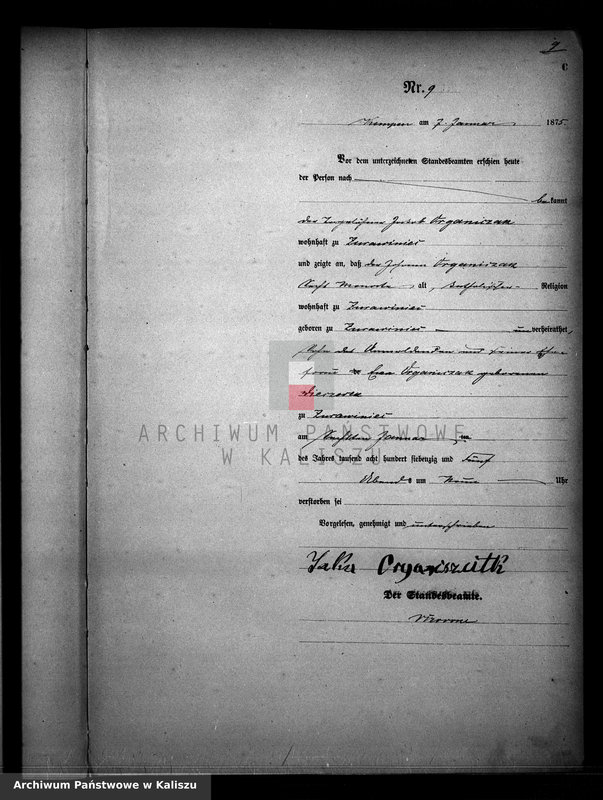 9
C
Nr. 9
Kempen am 7. Januar 1875.
Vor dem unterzeichneten Standesbeamten erschien heute
der Person nach
bekannt
der Jakob Organiszak
wohnhaft zu Zurawiniec
und zeigte an, daß der Johann Organiszak
sechs Monate alt, katholischer Religion
wohnhaft zu Zurawiniec
geboren zu Zurawiniec unverheirathet
Sohn des Anmeldenden und seiner Ehe-
frau Eva Organiszak geborenen
zu Zurawiniec
am sechsten Januar
des Jahres tausend acht hundert siebenzig und fünf
Abends um Neun Uhr
verstorben sei
Vorgelesen, genehmigt und unterschrieben
Organiszcitk
Der Standesbeamte.
ARCHIWUM PAŃSTWOWE
W KALISZU
Archiwum Państwowe w Kaliszu